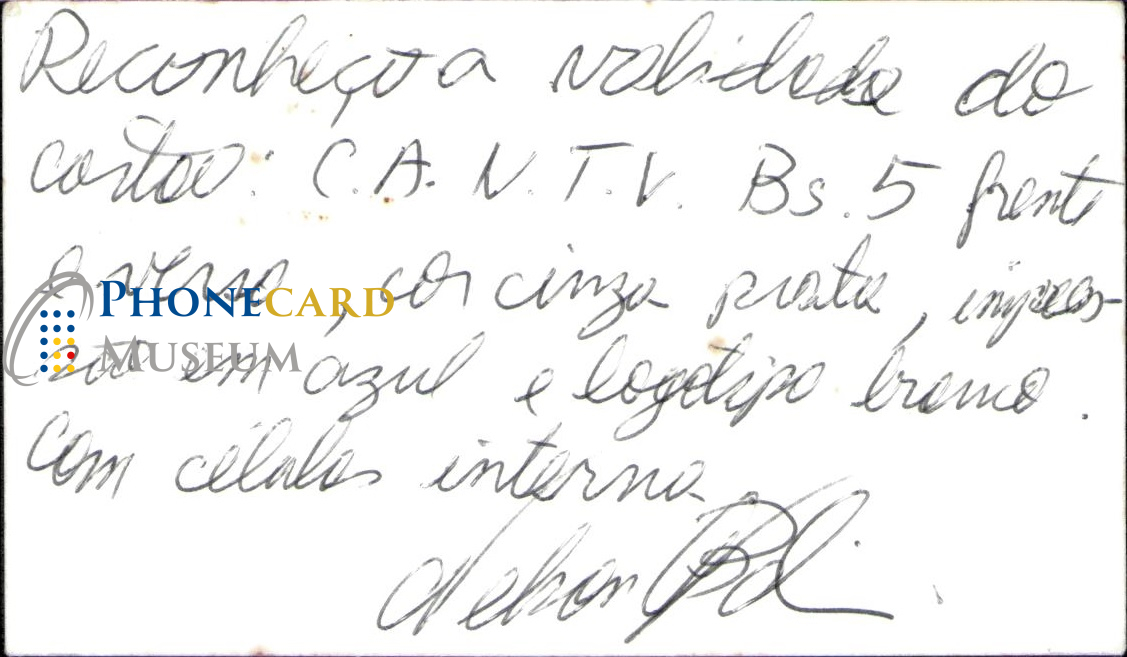 Reconheço a validade do
cartão: C.A.N.T.V. Bs. 5 frente
e verso, cor cinza prata, impres-
são em azul e logotipo branco.
com células interna.
Nelson
PHONECARD
MUSEUM